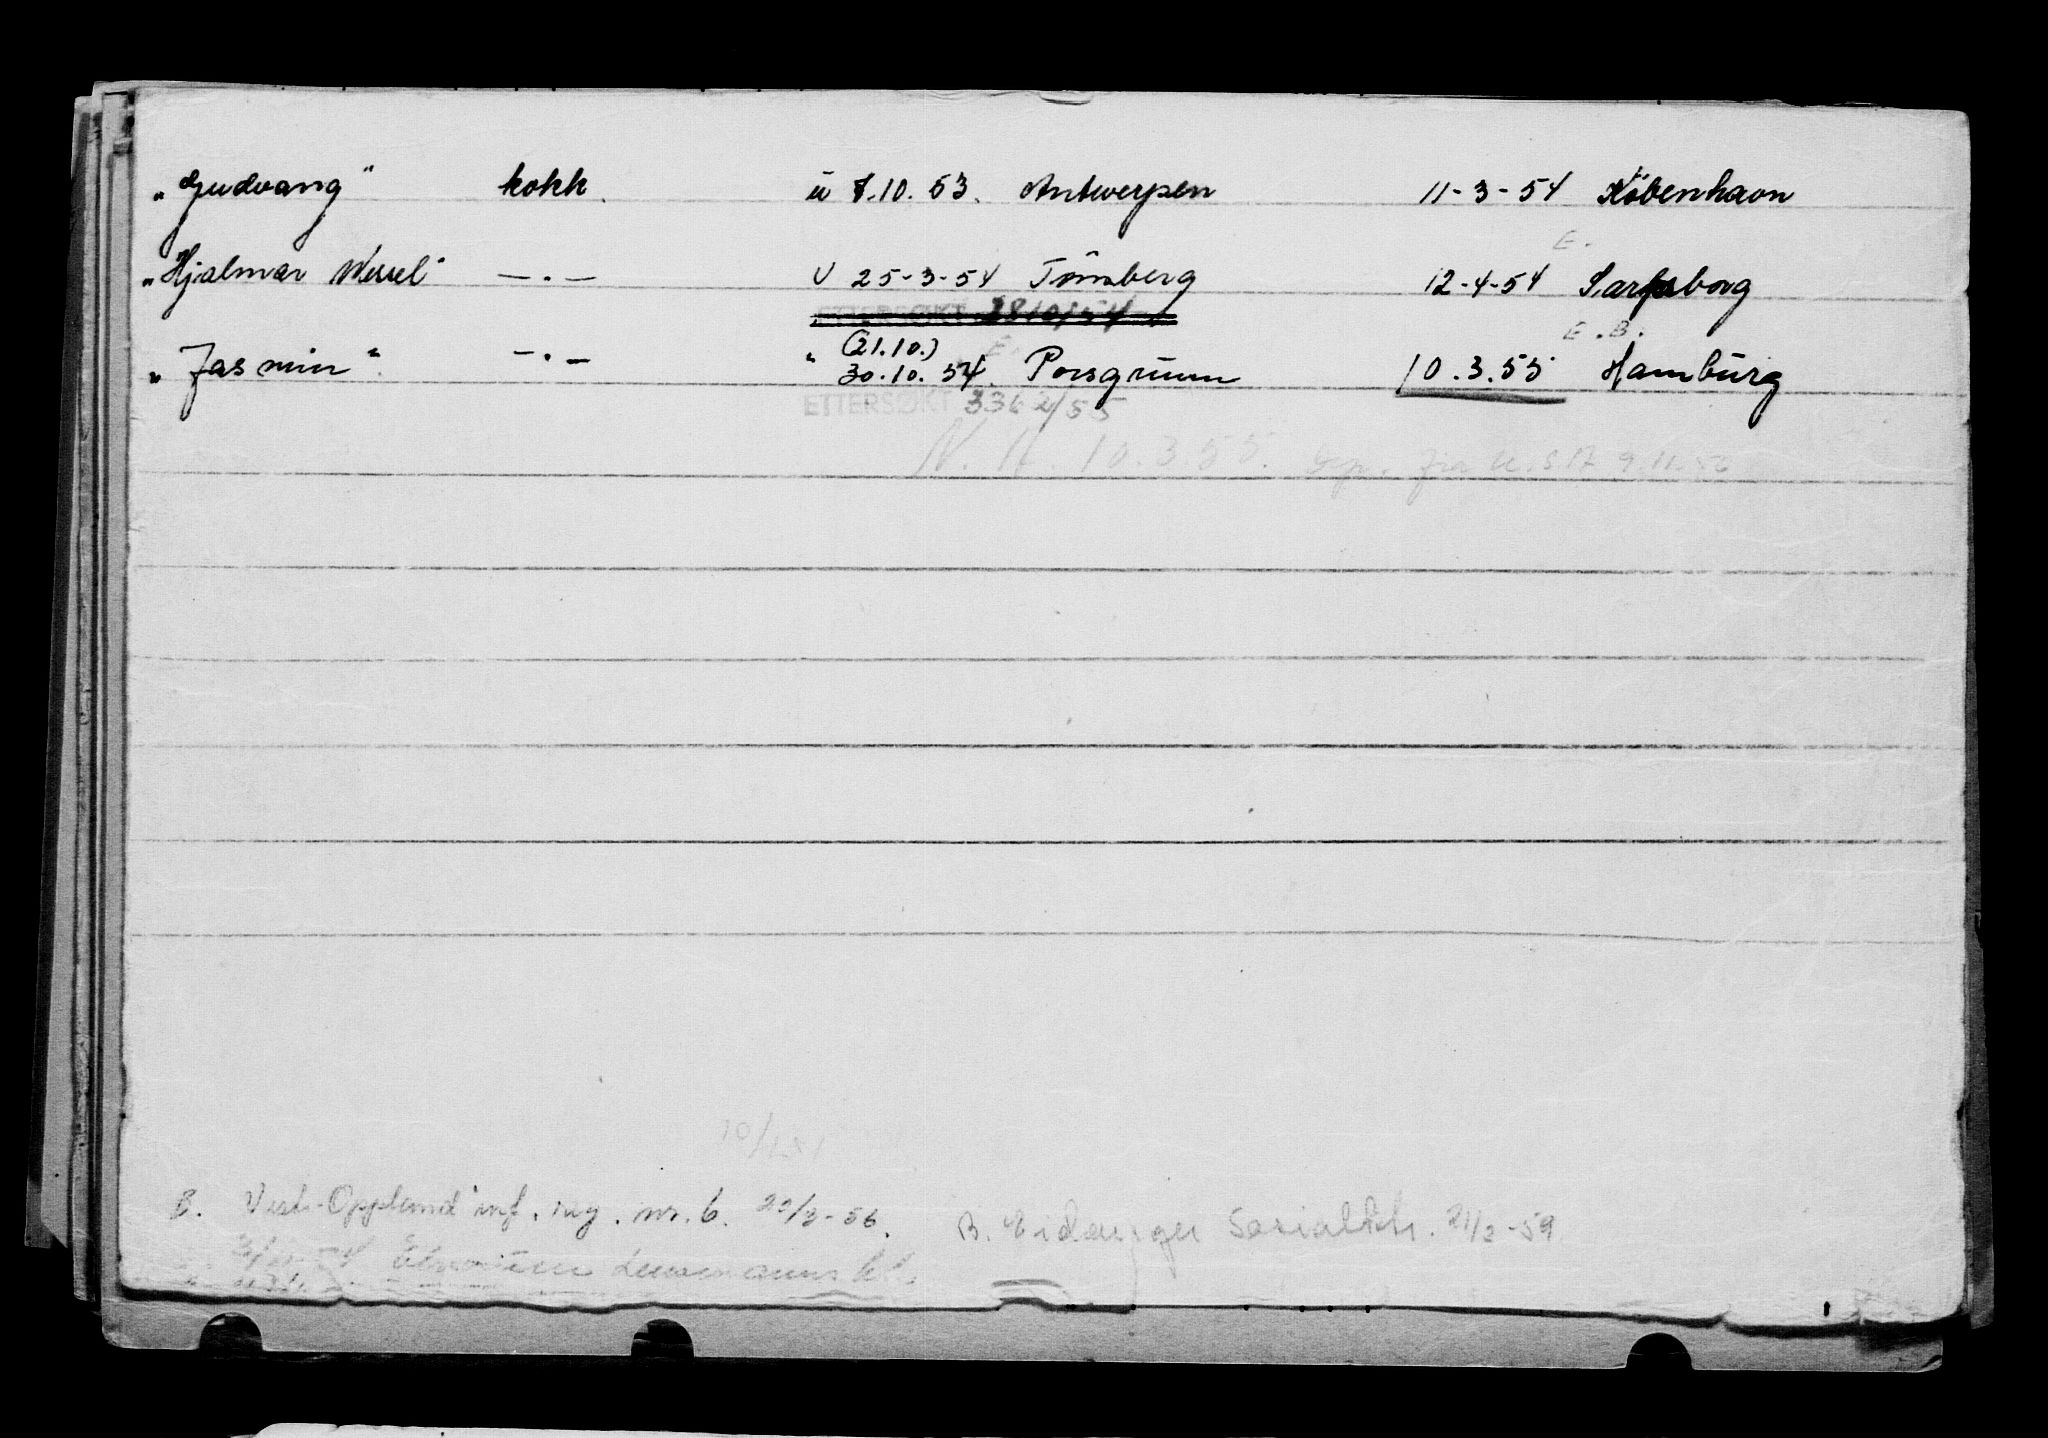 "Gudvang" kokk. u 7.10.53. Antwerpen 11-3-54 København
E.
"Hjalmar Wessel" —.— u 25-3-54 Tønsberg 12-4-54 Sarpsborg
ETTERSØKT
E.B.
"Jasmin" —.— " (21.10.) 30.10.54. Porsgrunn 10.3.55 Hamburg
ETTERSØKT 3362/55
N.A. 10.3.55. fra U.S.A
B. Vest-Oppland inf. reg. nr. 6. 20/3-56. B. Eidanger Sosialktr. 21/2-59
Lensmannsktr.